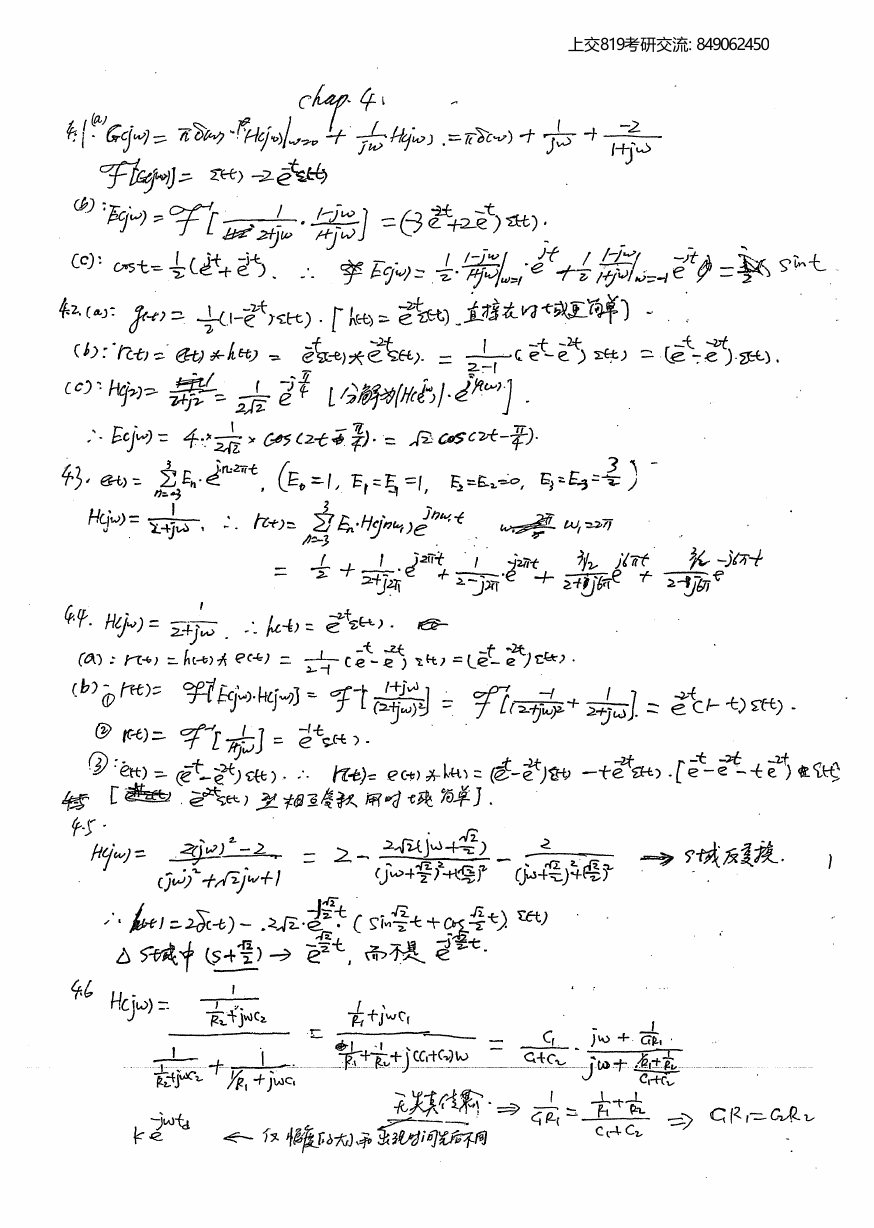 上交819考研交流: 849062450
chap. 4.
4.1.(a) G(jω) = πδ(ω)·H(jω)|ω=0 + 1/jω H(jω). = πδ(ω) + 1/jω + -2/(1+jω)
F⁻¹[G(jω)] = ε(t) - 2e^{-t}ε(t)
(b): E(jω) = F⁻¹[ 1/(2+jω) · (1-jω)/(1+jω) ] = (-3e^{-2t}+2e^{-t}) ε(t).
(c): cost = 1/2(e^{jt}+e^{-jt}). ∴ E(jω) = 1/2·(1-jω)/(1+jω)|ω=1 ·e^{jt} + 1/2 (1-jω)/(1+jω)|ω=-1 e^{-jt} = sint
4.2.(a): g(t) = 1/2(1-e^{-2t})ε(t). [h(t) = e^{-2t}ε(t). 直接在时域更简单]
(b): r(t) = e(t)*h(t) = e^{-t}ε(t)*e^{-2t}ε(t). = 1/(2-1) (e^{-t}-e^{-2t}) ε(t) = (e^{-t}-e^{-2t}).ε(t).
(c): H(j2) = 1/(2+j2) = 1/(2√2) e^{-jπ/4} [分解为|H(jω)|·e^{jφ(ω)}].
∴ E(jω) = 4×1/(2√2)×cos(2t-π/4). = √2 cos(2t-π/4).
4.3. e(t) = Σ_{n=-3}^{3} En·e^{jn·2πt}, (E₀=1, E₁=E₋₁=1, E₂=E₋₂=0, E₃=E₋₃=3/2)
H(jω) = 1/(2+jω), ∴ r(t) = Σ_{n=-3}^{3} En·H(jnω₁)e^{jnω₁t} ω₁=2π
= 1/2 + 1/(2+j2π)·e^{j2πt} + 1/(2-j2π)·e^{-j2πt} + (3/2)/(2+j6π) e^{j6πt} + (3/2)/(2-j6π) e^{-j6πt}
4.4. H(jω) = 1/(2+jω). ∴ h(t) = e^{-2t}ε(t).
(a): r(t) = h(t)*e(t) = 1/(2-1) (e^{-t}-e^{-2t}) ε(t) = (e^{-t}-e^{-2t})ε(t).
(b): ① r(t) = F⁻¹[E(jω)·H(jω)] = F⁻¹[(1+jω)/(2+jω)²] = F⁻¹[-1/(2+jω)² + 1/(2+jω)]. = e^{-2t}(1-t)ε(t).
② r(t) = F⁻¹[1/(1+jω)] = e^{-t}ε(t).
③: e(t) = (e^{-t}-e^{-2t})ε(t). ∴ r(t) = e(t)*h(t) = (e^{-t}-e^{-2t})ε(t) - te^{-2t}ε(t). [e^{-t}-e^{-2t}-te^{-2t}] ε(t)
[ e^{-2t}ε(t) 型相互卷积用时域简单].
4.5.
H(jω) = (2(jω)²-2)/((jω)²+√2jω+1) = 2 - 2√2(jω+√2/2)/((jω+√2/2)²+(√2/2)²) - 2/((jω+√2/2)²+(√2/2)²) → S域反变换.
∴ h(t) = 2δ(t) - 2√2·e^{-√2/2 t}·(sin√2/2 t + cos√2/2 t) ε(t)
△ S域中 (S+√2/2) → e^{-√2/2 t}, 而不是 e^{-j√2/2 t}.
4.6 H(jω) = (1/(1/R₂+jωC₂))/(1/(1/R₂+jωC₂) + 1/(1/R₁+jωC₁)) = (1/R₁+jωC₁)/(1/R₁+1/R₂+j(C₁+C₂)ω) = C₁/(C₁+C₂) · (jω+1/(C₁R₁))/(jω+(1/R₁+1/R₂)/(C₁+C₂))
无失真传输. ⇒ 1/(C₁R₁) = (1/R₁+1/R₂)/(C₁+C₂) ⇒ C₁R₁=C₂R₂
ke^{-jωtd} ← 仅幅度大小和出现时间先后不同